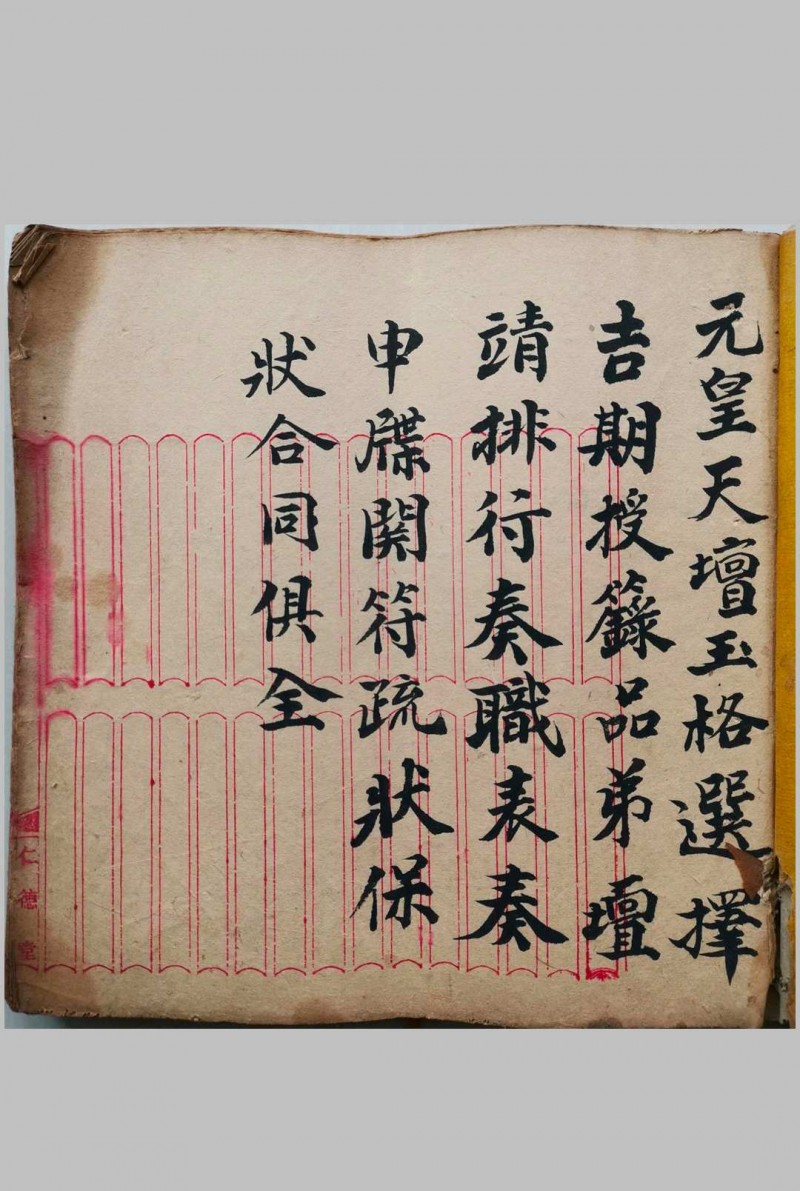 元皇天壇玉格選擇
吉期授籙品弟壇
靖排衍奏職表奏
申牒関符疏狀保
狀合同俱全
仁德堂